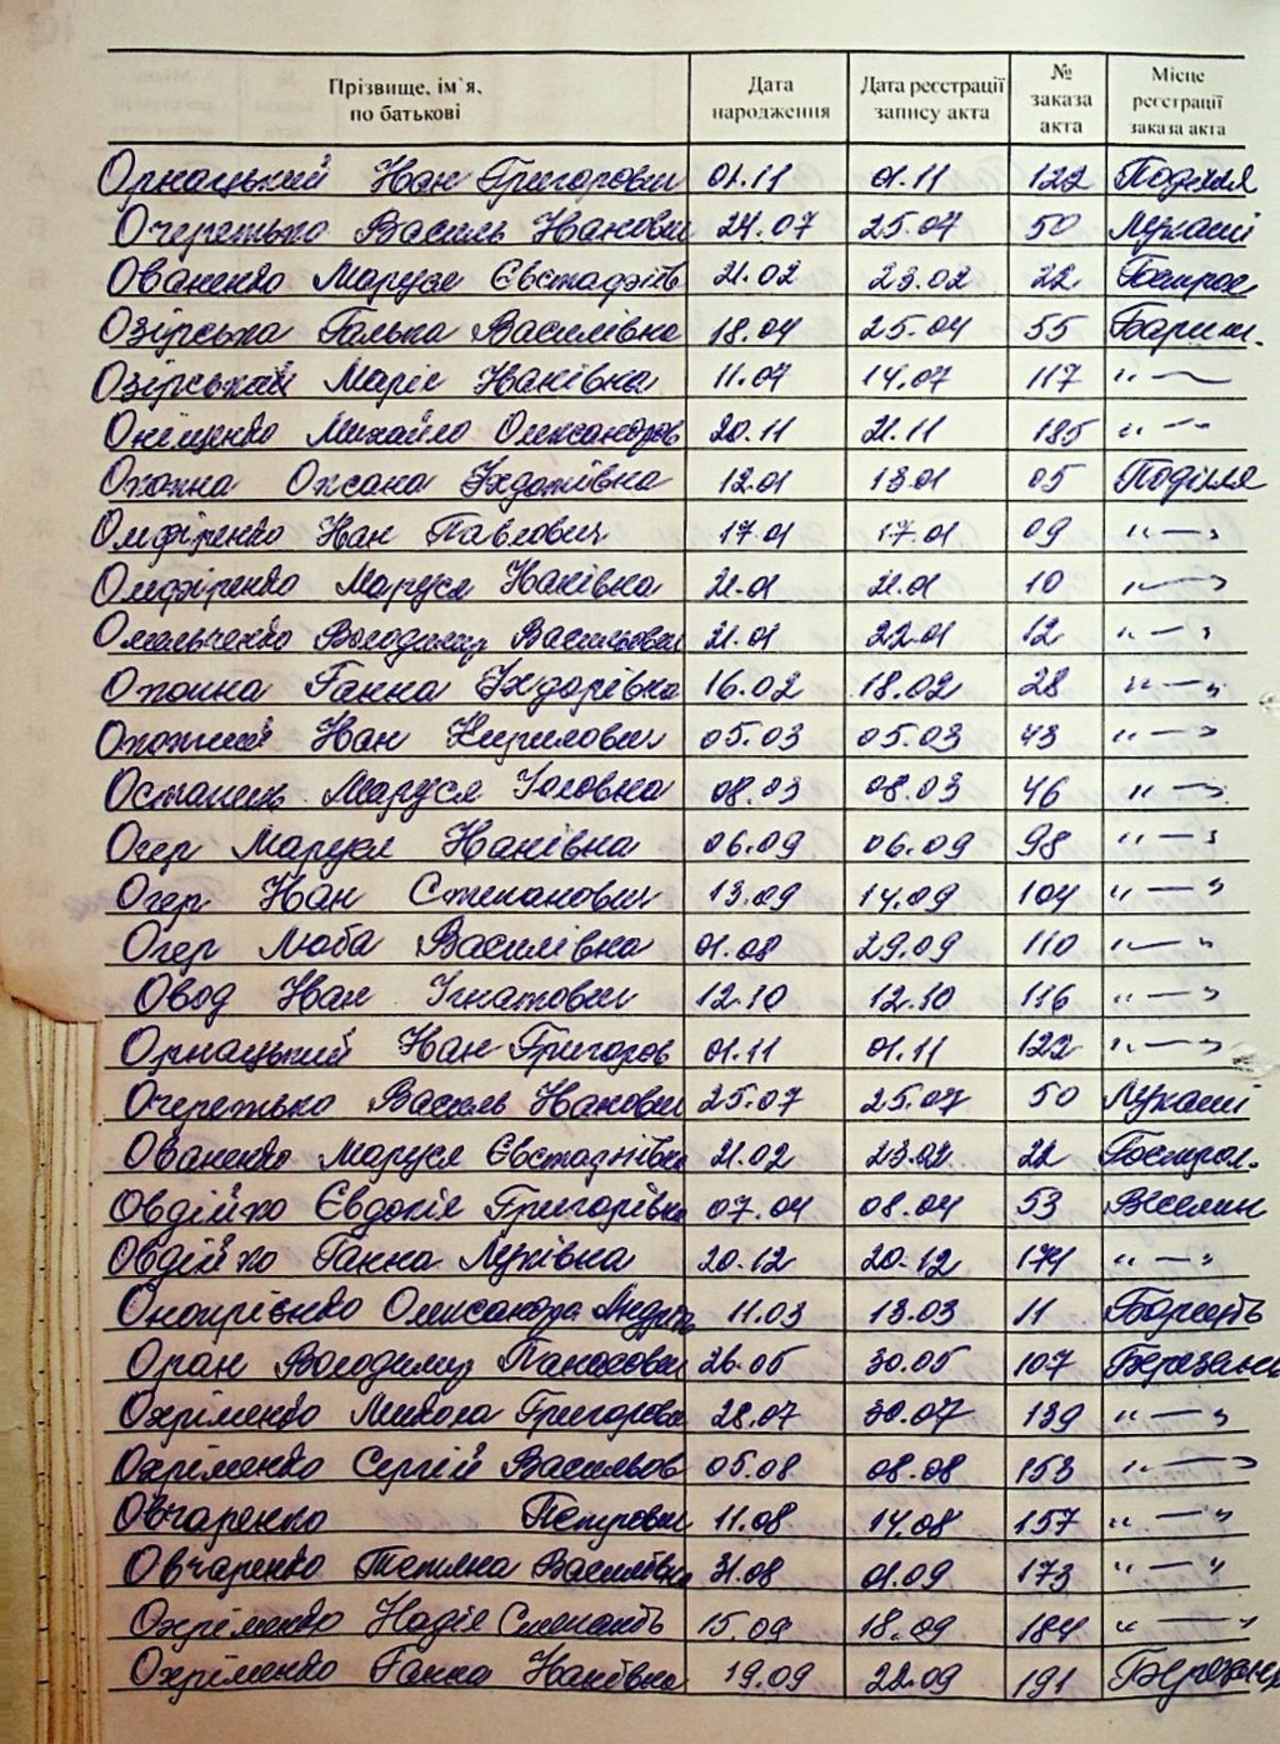 Прізвище, ім`я, по батькові Дата народження Дата реєстрації запису акта № заказа акта Місце реєстрації заказа акта
Орнацький Іван Григорович 01.11 01.11 122 Поділля
Очеретько Василь Іванович 24.07 25.07 50 Лукаші
Ованенко Маруся 21.02 23.02 22
Озірська Галька Василівна 18.04 25.04 55 Бариш.
Озірська Марія Іванівна 11.07 14.07 117 " —
Оніщенко Михайло Олександров 20.11 21.11 185 " — "
Оксана 12.01 13.01 05 Поділля
Іван Павлович 17.01 17.01 09 " — "
Маруся Іванівна 21.01 21.01 10 " — "
Омельченко Володимир Васильович 21.01 22.01 12 " — "
Ганна 16.02 18.02 28 " — "
Іван Кирилович 05.03 05.03 43 " — "
Маруся 08.03 08.03 46 " — "
Огер Маруся Іванівна 06.09 06.09 98 " — "
Огер Іван Степанович 13.09 14.09 104 " — "
Огер Люба Василівна 01.08 29.09 110 " — "
Овод Іван Ігнатович 12.10 12.10 116 " — "
Орнацький Іван Григоров 01.11 01.11 122 " — "
Очеретько Василь Іванович 25.07 25.07 50 Лукаші
Ованенко Маруся 21.02 23.02 22
Овдійко Євдокія Григорівна 07.04 08.04 53
Овдійко Ганна Луківна 20.12 20.12 174 " — "
Онопрієнко Олександра 11.03 13.03 11
Оран Володимир Панасович 26.05 30.05 107 Березань
Охріменко Микола Григорович 28.07 30.07 139 " — "
Охріменко Сергій Васильов 05.08 08.08 153 " — "
Овчаренко Петрович 11.08 14.08 157 " — "
Овчаренко Тетяна Василівна 31.08 01.09 173 " — "
Охріменко Надія Степанів 15.09 18.09 184 " — "
Охріменко Ганна Іванівна 19.09 22.09 191 Березань